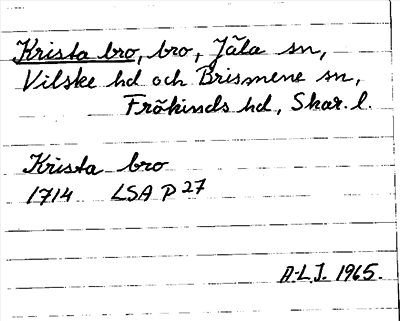 Krista bro, bro, Jäla sn,
Vilske hd och Brismene sn,
Frökinds hd, Skar. l.
Krista bro
1714 LSA P 27
A.L.J. 1965.